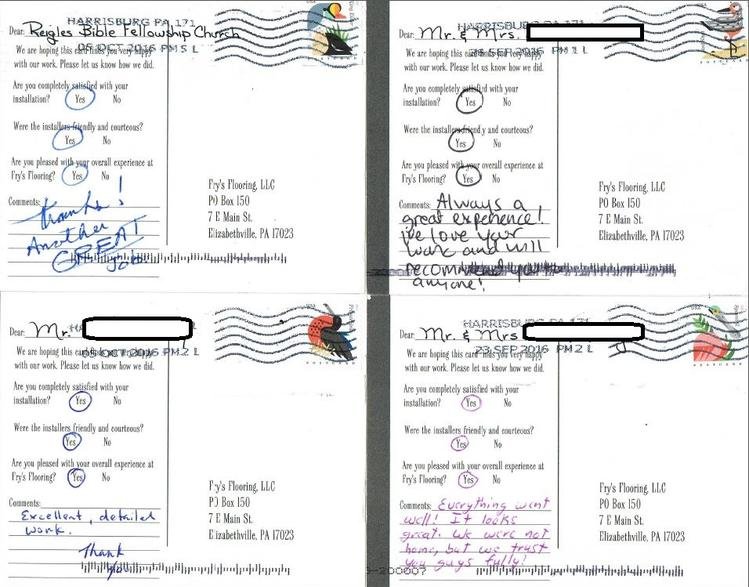 HARRISBURG PA 171
Dear: Reigles Bible Fellowship Church
05 OCT 2016 PM 5 L
We are hoping this card finds you very happy
with our work. Please let us know how we did.
Are you completely satisfied with your
installation? Yes No
Were the installers friendly and courteous?
Yes No
Are you pleased with your overall experience at
Fry's Flooring? Yes No
Comments:
Thanks!
Another
GREAT
Job
Fry's Flooring, LLC
PO Box 150
7 E Main St.
Elizabethville, PA 17023
HARRISBURG PA 171
Dear: Mr. & Mrs.
26 SEP 2016 PM 1 L
We are hoping this card finds you very happy
with our work. Please let us know how we did.
Are you completely satisfied with your
installation? Yes No
Were the installers friendly and courteous?
Yes No
Are you pleased with your overall experience at
Fry's Flooring? Yes No
Comments: Always a
great experience!
We love your
work and will
recommend you to
anyone!
Fry's Flooring, LLC
PO Box 150
7 E Main St.
Elizabethville, PA 17023
Dear: Mr.
05 OCT 2016 PM 2 L
We are hoping this card finds you very happy
with our work. Please let us know how we did.
Are you completely satisfied with your
installation? Yes No
Were the installers friendly and courteous?
Yes No
Are you pleased with your overall experience at
Fry's Flooring? Yes No
Comments:
Excellent, detailed
work.
Thank
You
Fry's Flooring, LLC
PO Box 150
7 E Main St.
Elizabethville, PA 17023
HARRISBURG PA 171
Dear: Mr. & Mrs
23 SEP 2016 PM 2 L
We are hoping this card finds you very happy
with our work. Please let us know how we did.
Are you completely satisfied with your
installation? Yes No
Were the installers friendly and courteous?
Yes No
Are you pleased with your overall experience at
Fry's Flooring? Yes No
Comments: Everything went
well! It looks
great. We were not
home, but we trust
you guys fully!
Fry's Flooring, LLC
PO Box 150
7 E Main St.
Elizabethville, PA 17023